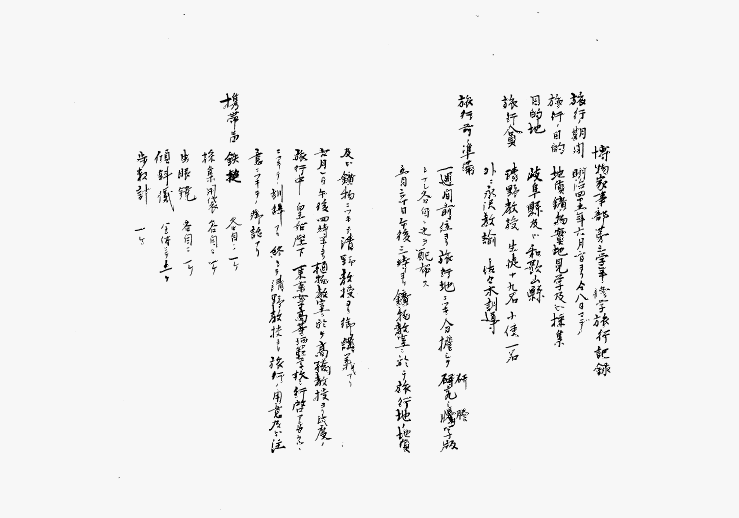 博物家事部第三学年修学旅行記録
旅行ノ期間 明治四十五年六月二日ヨリ仝八日マデ
旅行ノ目的 地質鑛物実地見学及ビ採集
目的地 岐阜縣及ビ和歌山縣
旅行人員 清野教授 生徒十九名 小使一名
外ニ永沢教諭 佐々木訓導
旅行前ノ準備
一週間前位ヨリ旅行地ニツキ分擔シテ研究シ謄写版
研 謄
ニテ各自ニ之ヲ配布ス
五月三十日午後三時ヨリ鑛物教室ニ於テ旅行地ノ地質
及ビ鑛物ニツキテ清野教授ヨリ御講義アリ
六月一日午後四時半ヨリ植物教室ニ於テ高橋教授ヨリ此度ノ
旅行中 皇后陛下 東京女子高等師範学校ニ行啓
ニツキテノ訓辞アリ 終リテ清野教授ヨリ旅行ノ用意及ビ注
意ニツキテノ御話アリ
携帯品 鉄槌 各自ニ一ケ
採集用袋 各自ニ一ケ
虫眼鏡 各自ニ一ケ
傾斜儀 全体ニ
歩数計 一ケ